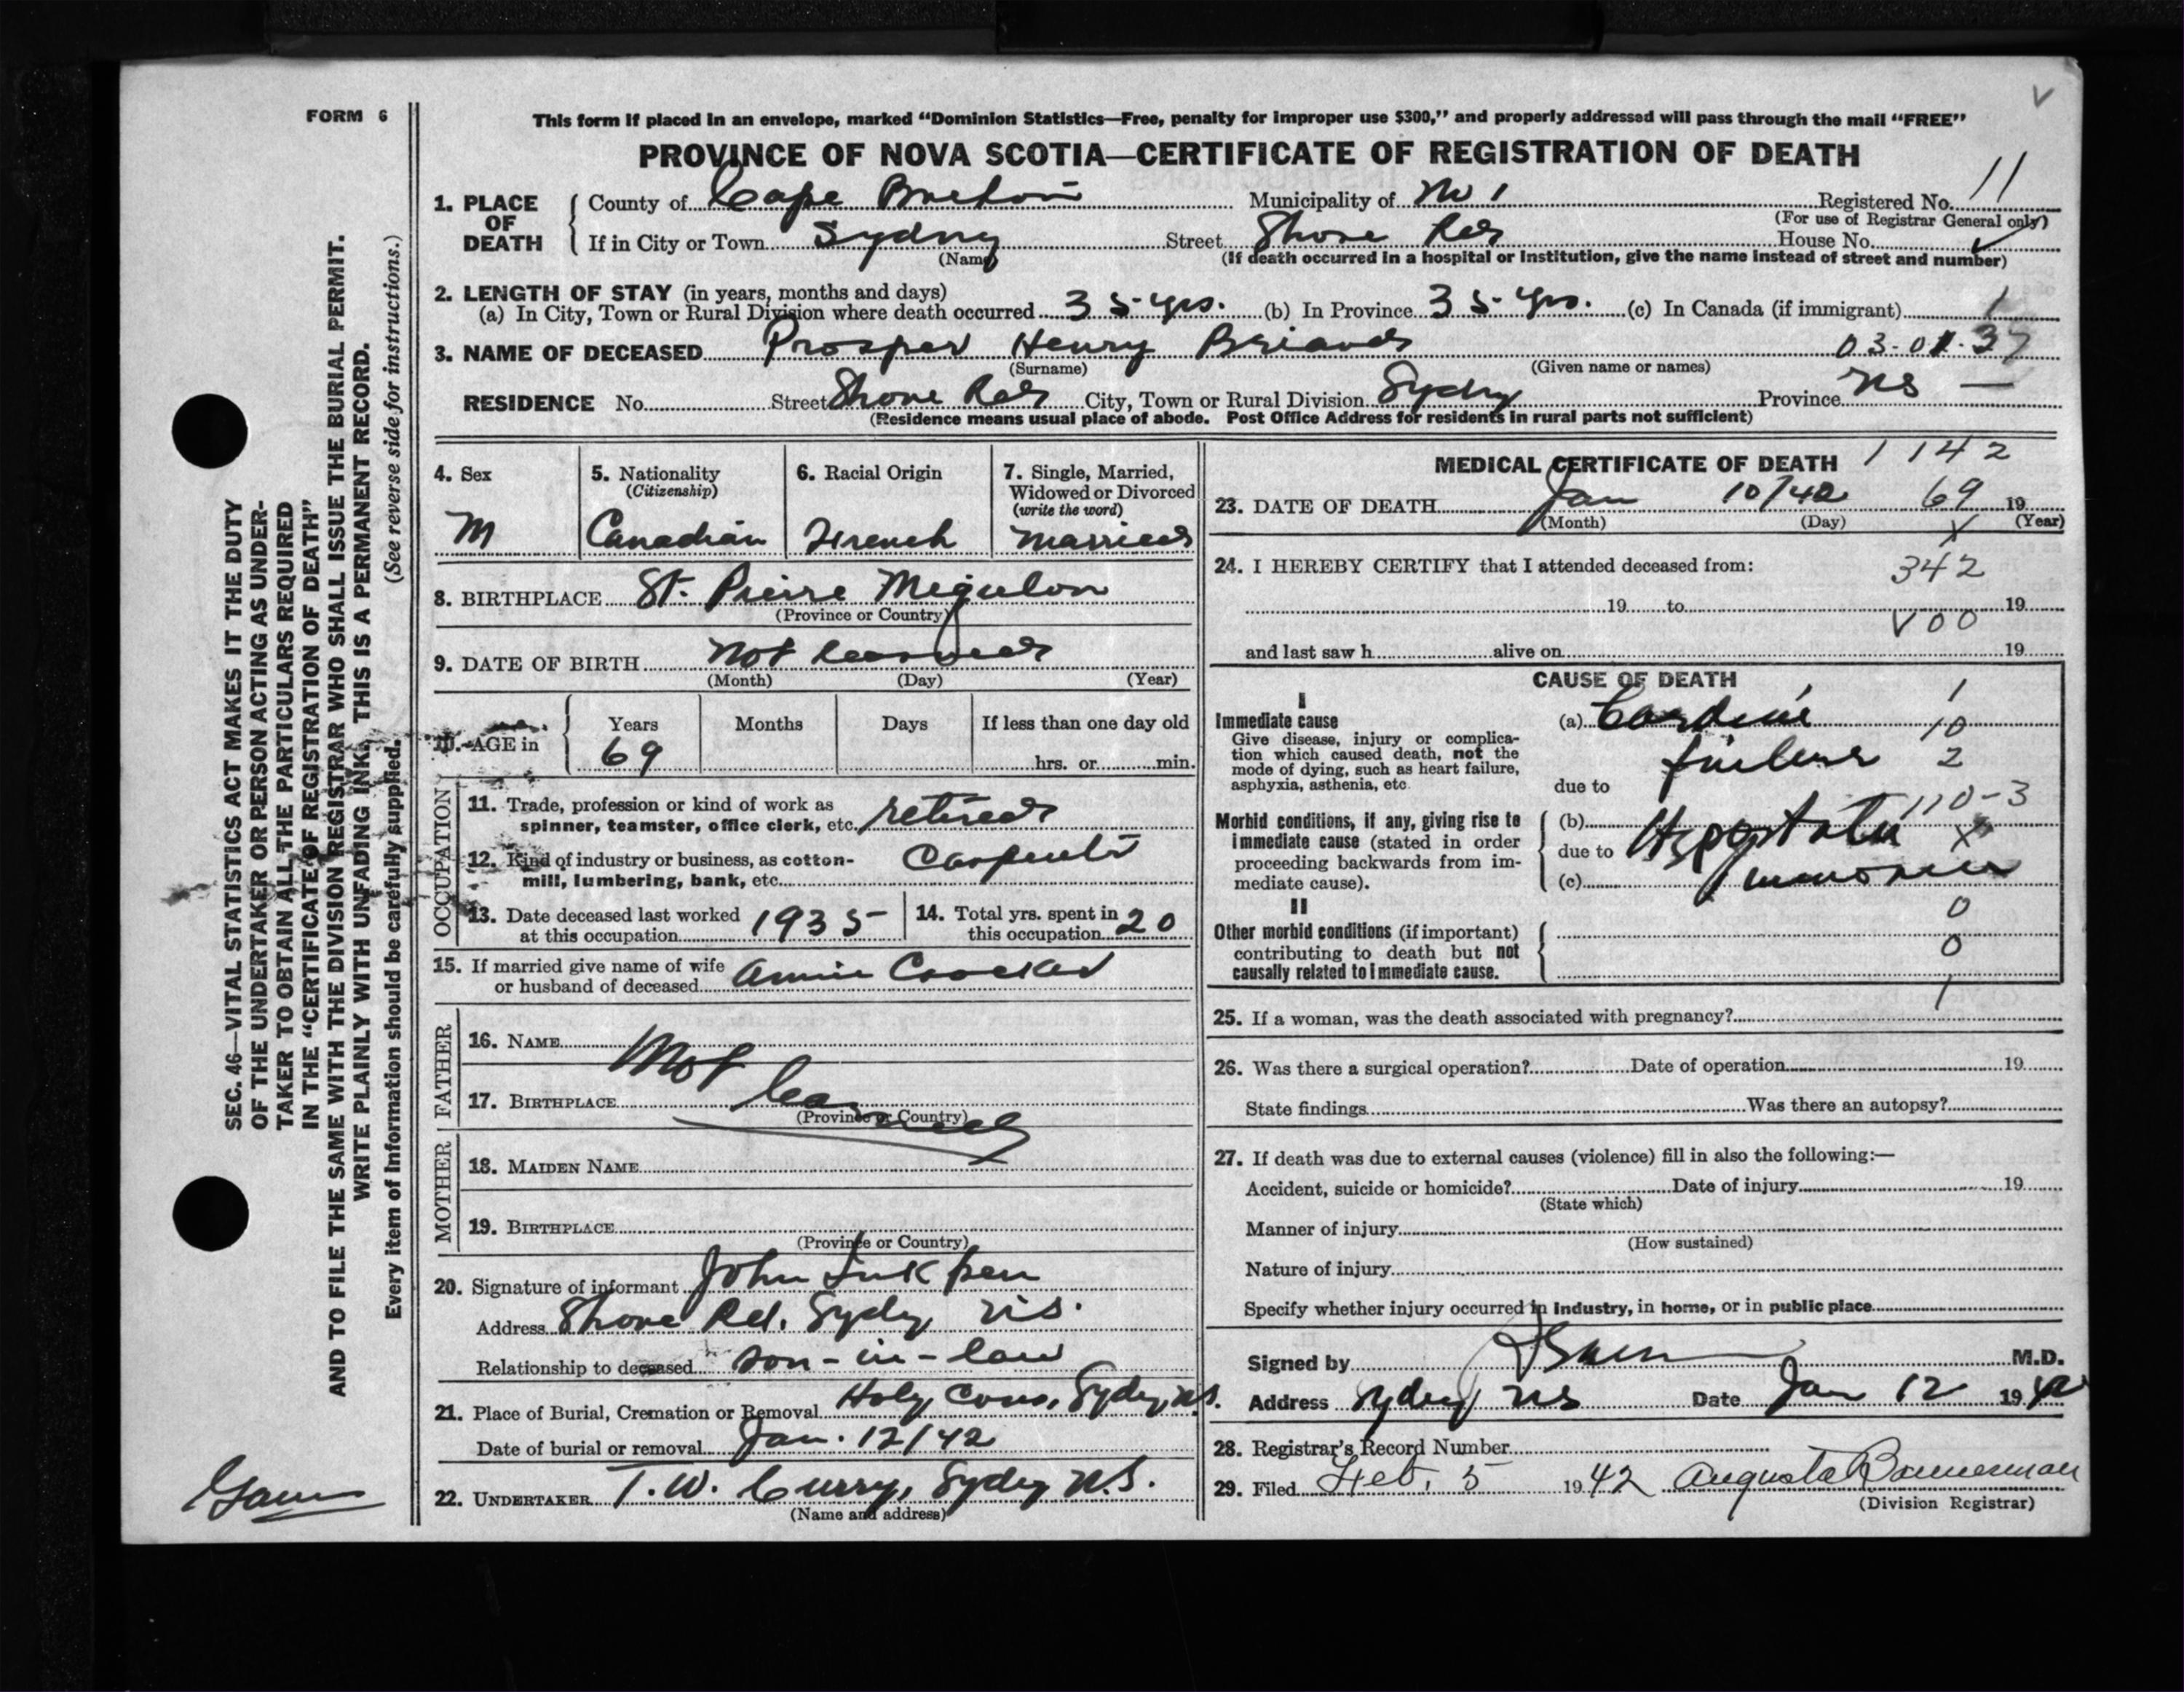 FORM 6
This form if placed in an envelope, marked “Dominion Statistics—Free, penalty for improper use $300,” and properly addressed will pass through the mail “FREE”
PROVINCE OF NOVA SCOTIA—CERTIFICATE OF REGISTRATION OF DEATH
1. PLACE OF DEATH
County of Cape Breton Municipality of No 1 Registered No. 11
(For use of Registrar General only)
If in City or Town Sydney Street Shore Rd House No.
(Name) (If death occurred in a hospital or institution, give the name instead of street and number)
2. LENGTH OF STAY (in years, months and days)
(a) In City, Town or Rural Division where death occurred 35 yrs. (b) In Province 35 yrs. (c) In Canada (if immigrant) 1
3. NAME OF DECEASED Prosper Henry Briand 03-01-37
(Surname) (Given name or names)
RESIDENCE No. Street Shore Rd City, Town or Rural Division Sydney Province NS —
(Residence means usual place of abode. Post Office Address for residents in rural parts not sufficient)
4. Sex
M
5. Nationality
(Citizenship)
Canadian
6. Racial Origin
French
7. Single, Married, Widowed or Divorced
(write the word)
Married
8. BIRTHPLACE St. Pierre Miquelon
(Province or Country)
9. DATE OF BIRTH Not learned
(Month) (Day) (Year)
10. AGE in Years Months Days If less than one day old
69 hrs. or min.
OCCUPATION
11. Trade, profession or kind of work as
spinner, teamster, office clerk, etc. retired
12. Kind of industry or business, as cotton-
mill, lumbering, bank, etc. Carpenter
13. Date deceased last worked
at this occupation 1935
14. Total yrs. spent in
this occupation 20
15. If married give name of wife
or husband of deceased Annie
FATHER
16. NAME Not
17. BIRTHPLACE learned
(Province or Country)
MOTHER
18. MAIDEN NAME
19. BIRTHPLACE
(Province or Country)
20. Signature of informant John Inkpen
Address Shore Rd. Sydney NS.
Relationship to deceased son-in-law
21. Place of Burial, Cremation or Removal Holy Cross, Sydney, N.S.
Date of burial or removal Jan. 12/42
22. UNDERTAKER T. W. Curry, Sydney N.S.
(Name and address)
MEDICAL CERTIFICATE OF DEATH 1 1 42
23. DATE OF DEATH Jan 10/42 69 19
(Month) (Day) (Year)
X
24. I HEREBY CERTIFY that I attended deceased from: 342
19 to 19
V00
and last saw h alive on 19
CAUSE OF DEATH
I
Immediate cause
Give disease, injury or complica-
tion which caused death, not the
mode of dying, such as heart failure,
asphyxia, asthenia, etc.
(a) Cardiac 1
10
failure 2
due to
110-3
Morbid conditions, if any, giving rise to
immediate cause (stated in order
proceeding backwards from im-
mediate cause).
(b)
due to Hypostatic X
(c) pneumonia
II
Other morbid conditions (if important)
contributing to death but not
causally related to immediate cause.
0
0
1
25. If a woman, was the death associated with pregnancy?
26. Was there a surgical operation? Date of operation 19
State findings Was there an autopsy?
27. If death was due to external causes (violence) fill in also the following:—
Accident, suicide or homicide? Date of injury 19
(State which)
Manner of injury
(How sustained)
Nature of injury
Specify whether injury occurred in industry, in home, or in public place
Signed by M.D.
Address Sydney NS Date Jan 12 1942
28. Registrar's Record Number
29. Filed Feb. 5 1942 Augusta Bannerman
(Division Registrar)
SEC. 46—VITAL STATISTICS ACT MAKES IT THE DUTY
OF THE UNDERTAKER OR PERSON ACTING AS UNDER-
TAKER TO OBTAIN ALL THE PARTICULARS REQUIRED
IN THE “CERTIFICATE OF REGISTRATION OF DEATH”
AND TO FILE THE SAME WITH THE DIVISION REGISTRAR WHO SHALL ISSUE THE BURIAL PERMIT.
WRITE PLAINLY WITH UNFADING INK. THIS IS A PERMANENT RECORD.
Every item of information should be carefully supplied. (See reverse side for instructions.)